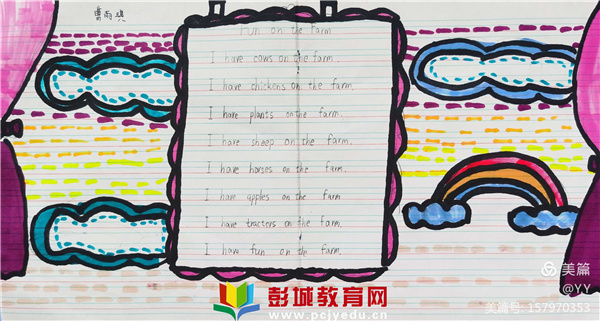 曹雨琪
Fun on the farm
I have cows on the farm.
I have chickens on the farm.
I have plants on the farm.
I have sheep on the farm.
I have horses on the farm.
I have apples on the farm
I have tracters on the farm.
I have fun on the farm.
彭城教育网
www.pcjyedu.cn
美篇
@YY
美篇号: 157970353